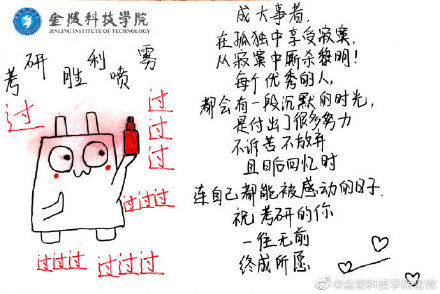 金陵科技學院
JINLING INSTITUTE OF TECHNOLOGY
考研胜利喷雾
过
过
过
过
过过过
过过过
过过过
成大事者,
在孤独中享受寂寞,
从寂寞中厮杀黎明!
每个优秀的人,
都会有一段沉默的时光,
是付出了很多努力
不诉苦不放弃
且日后回忆时
连自己都能被感动的日子.
祝考研的你
一往无前
终成所愿
@金陵科技学院官微